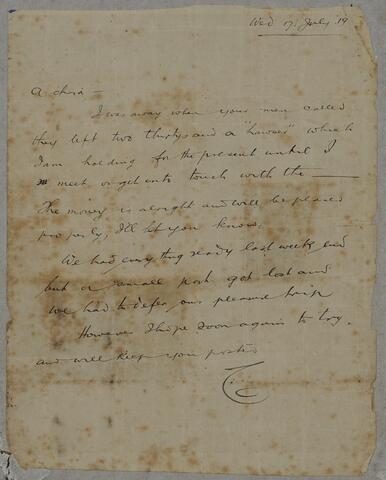 Wed 17th July '19
A chara —
I was away when your men called
they left two thirtys and a "howser" which
I am holding for the present until I
meet or get into touch with the ———
The money is alright and will be placed
properly, I'll let you know.
We had everything ready last week end
but a small part got lost and
we had to defer our pleasure trip
However I hope soon again to try.
and will keep you posted